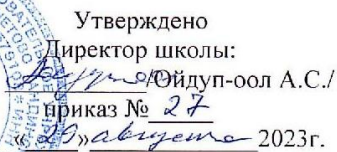 Утверждено
Директор школы:
/Ойдуп-оол А.С./
приказ № 27
«29» августа 2023г.